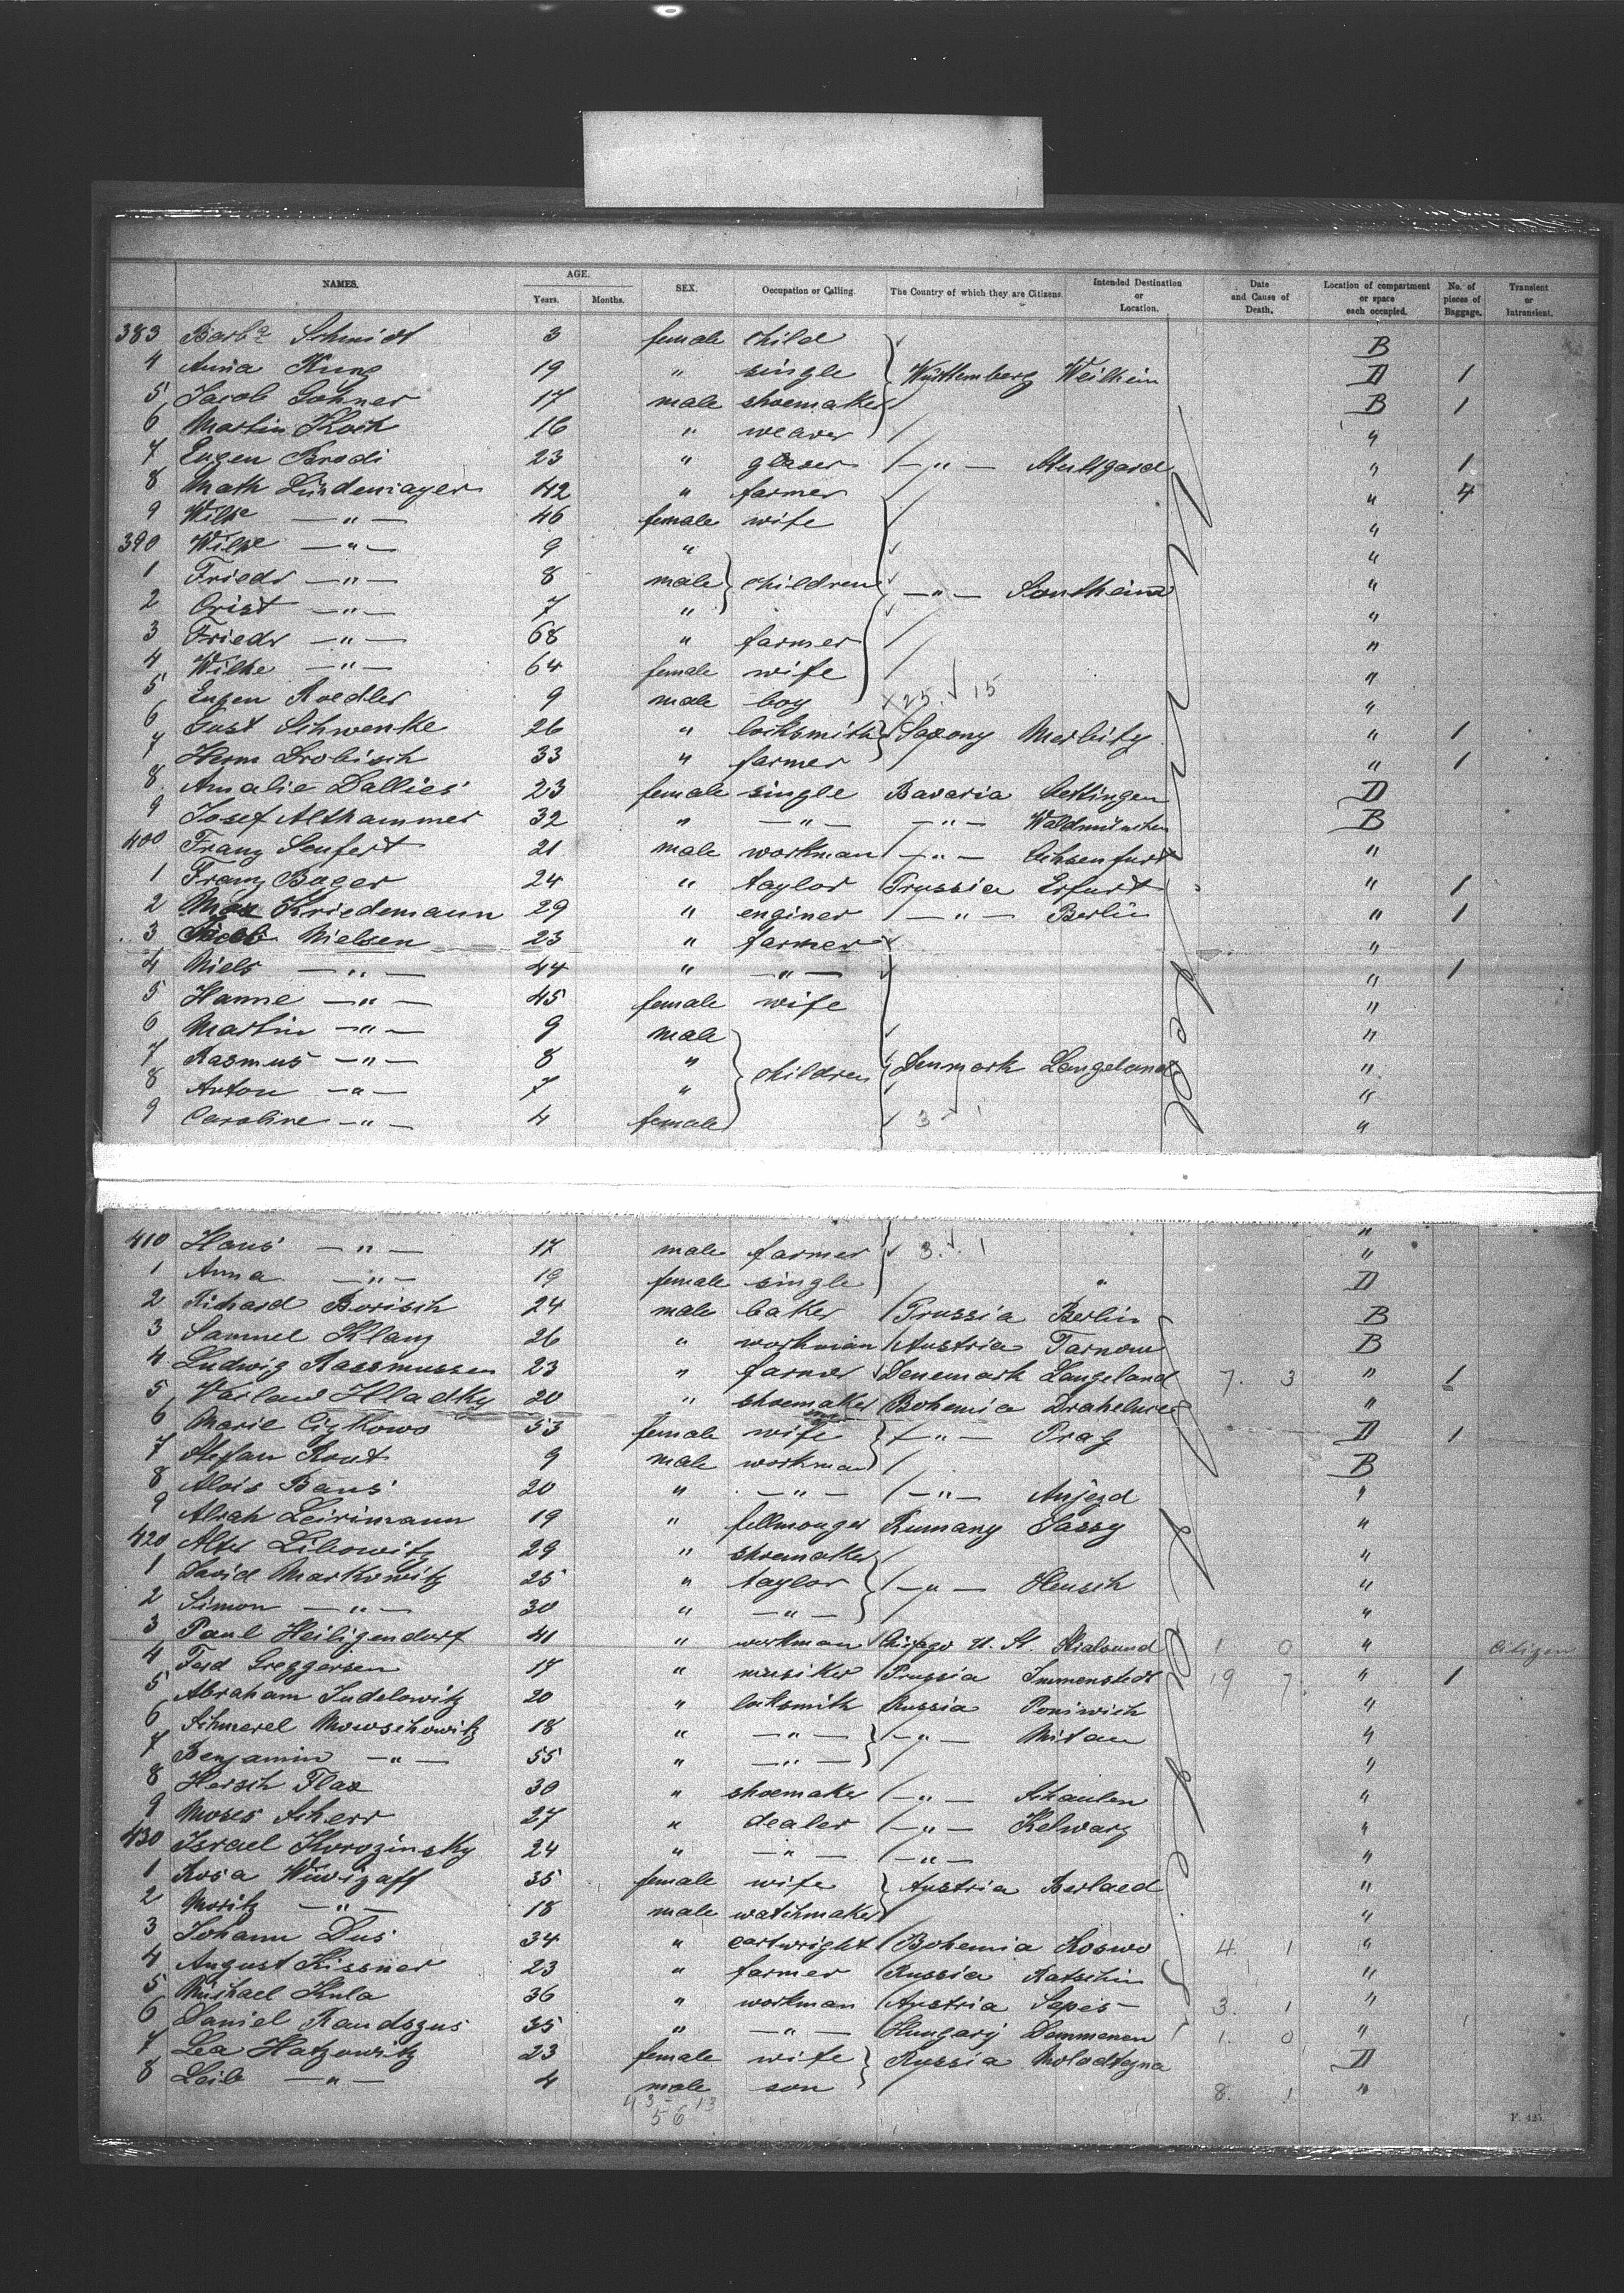 NAMES. AGE. Years. Months. SEX. Occupation or Calling. The Country of which they are Citizens. Intended Destination or Location. Date and Cause of Death. Location of compartment or space each occupied. No. of pieces of Baggage. Transient or Intransient.
383 Barba Schmidt 3 female child B
4 Anna Kung 19 " single Württemberg Weilheim D 1
5 Jacob Göhner 17 male shoemaker B 1
6 Martin Koch 16 " weaver "
7 Eugen Brodi 23 " glaser —"— Stuttgard " 1
8 Math Lindemayer 42 " farmer " 4
9 Wilhe —"— 46 female wife "
390 Wilhe —"— 9 " "
1 Friedr —"— 8 male children —"— Sontheim "
2 Crist —"— 7 " "
3 Friedr —"— 68 " farmer "
4 Wilhe —"— 64 female wife "
5 Eugen Roedler 9 male boy 25 15 "
6 Gust Schwenke 26 " locksmith Saxony " 1
7 Herm Drobisch 33 " farmer " 1
8 Amalie Dallies 23 female single Bavaria Oettingen D
9 Josef Althammer 32 " —"— —"— Waldmünchen B
400 Franz Seufert 21 male workman —"— Ochsenfurt "
1 Franz Bager 24 " taylor Prussia Erfurt " 1
2 Max Kriedemann 29 " enginer —"— Berlin " 1
3 Nielsen 23 " farmer "
4 Niels —"— 44 " —"— " 1
5 Hanne —"— 45 female wife "
6 Martin —"— 9 male "
7 Rasmus —"— 8 " children Denmark Langeland "
8 Anton —"— 7 " "
9 Caroline —"— 4 female 3 1 "
"
410 Hans —"— 17 male farmer 3 1 "
1 Anna —"— 19 female single " D
2 Richard Borisch 24 male baker Prussia Berlin B
3 Samuel Klang 26 " workman Austria Tarnow B
4 Ludwig Rassmussen 23 " farmer Denemark Langeland 7. 3 " 1
5 Hladky 20 " shoemaker Bohemia "
6 Marie 53 female wife —"— Prag D 1
7 Stefan Kout 9 male workman B
8 Alois Bans 20 " —"— —"— Anjezd "
9 Abrah Leirimann 19 " fellmonger Rumany Jassy "
420 Alter Libowitz 29 " shoemaker "
1 David Markowitz 25 " taylor —"— Heusch "
2 Simon —"— 30 " —"— "
3 Paul Heiligendorf 41 " workman U. St. Stralsund 1 0 " Citizen
4 Ferd Greggersen 17 " musiker Prussia Immenstedt 19 7. " 1
5 Abraham Judelowitz 20 " locksmith Russia Poniwich "
6 Schmerel Mowschowitz 18 " —"— —"— Mitau "
7 Benjamin —"— 55 " —"— "
8 Hersch Flax 30 " shoemaker —"— Schaulen "
9 Moses Scherr 27 " dealer —"— Kelwarz "
430 Israel Korozinsky 24 " —"— —"— "
1 Rosa 35 female wife Austria Berlaed "
2 Moritz —"— 18 male watchmaker "
3 Johann Dus 34 " cartwright Bohemia Koswo 4. 1 "
4 August Kissner 23 " farmer Russia Ratschin "
5 Michael Kula 36 " workman Austria Sepes— 3. 1 "
6 Daniel Randszus 35 " —"— Hungary Dammenen 1. 0 "
7 Lea Hatzowitz 23 female wife Russia Molodtezna D
8 Leib —"— 4 male son 8. 1 "
43 - 13
56
F. 425.